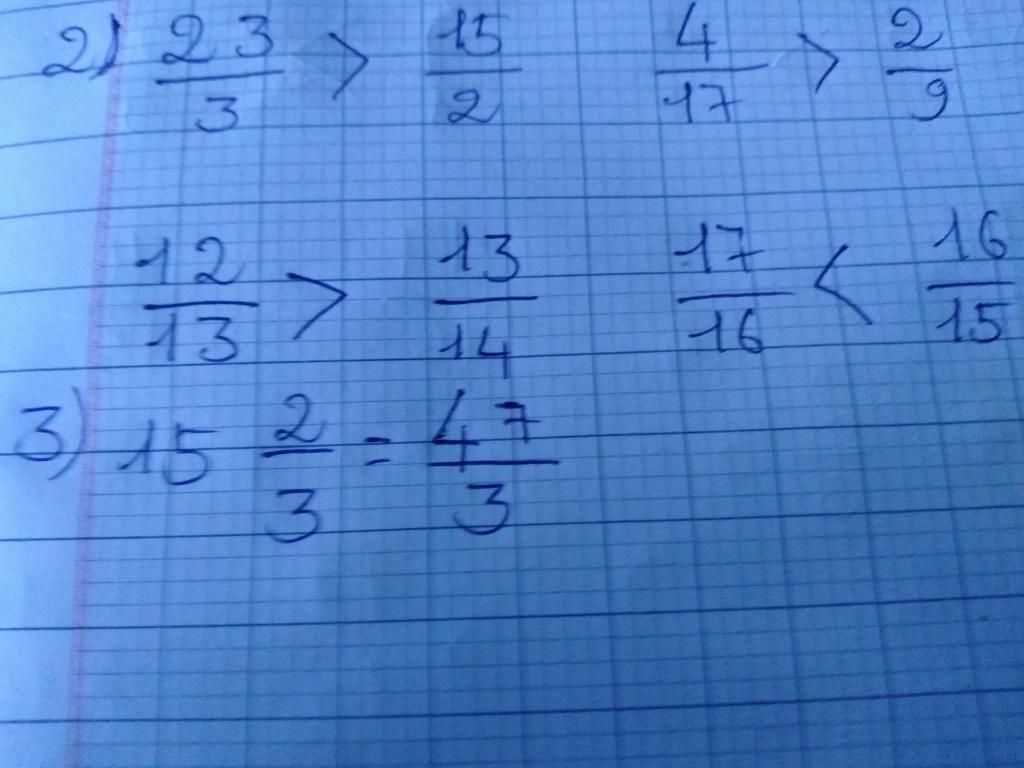 2) 23/3 > 15/2 4/17 > 2/9
12/13 > 13/14 17/16 < 16/15
3) 15 2/3 = 47/3